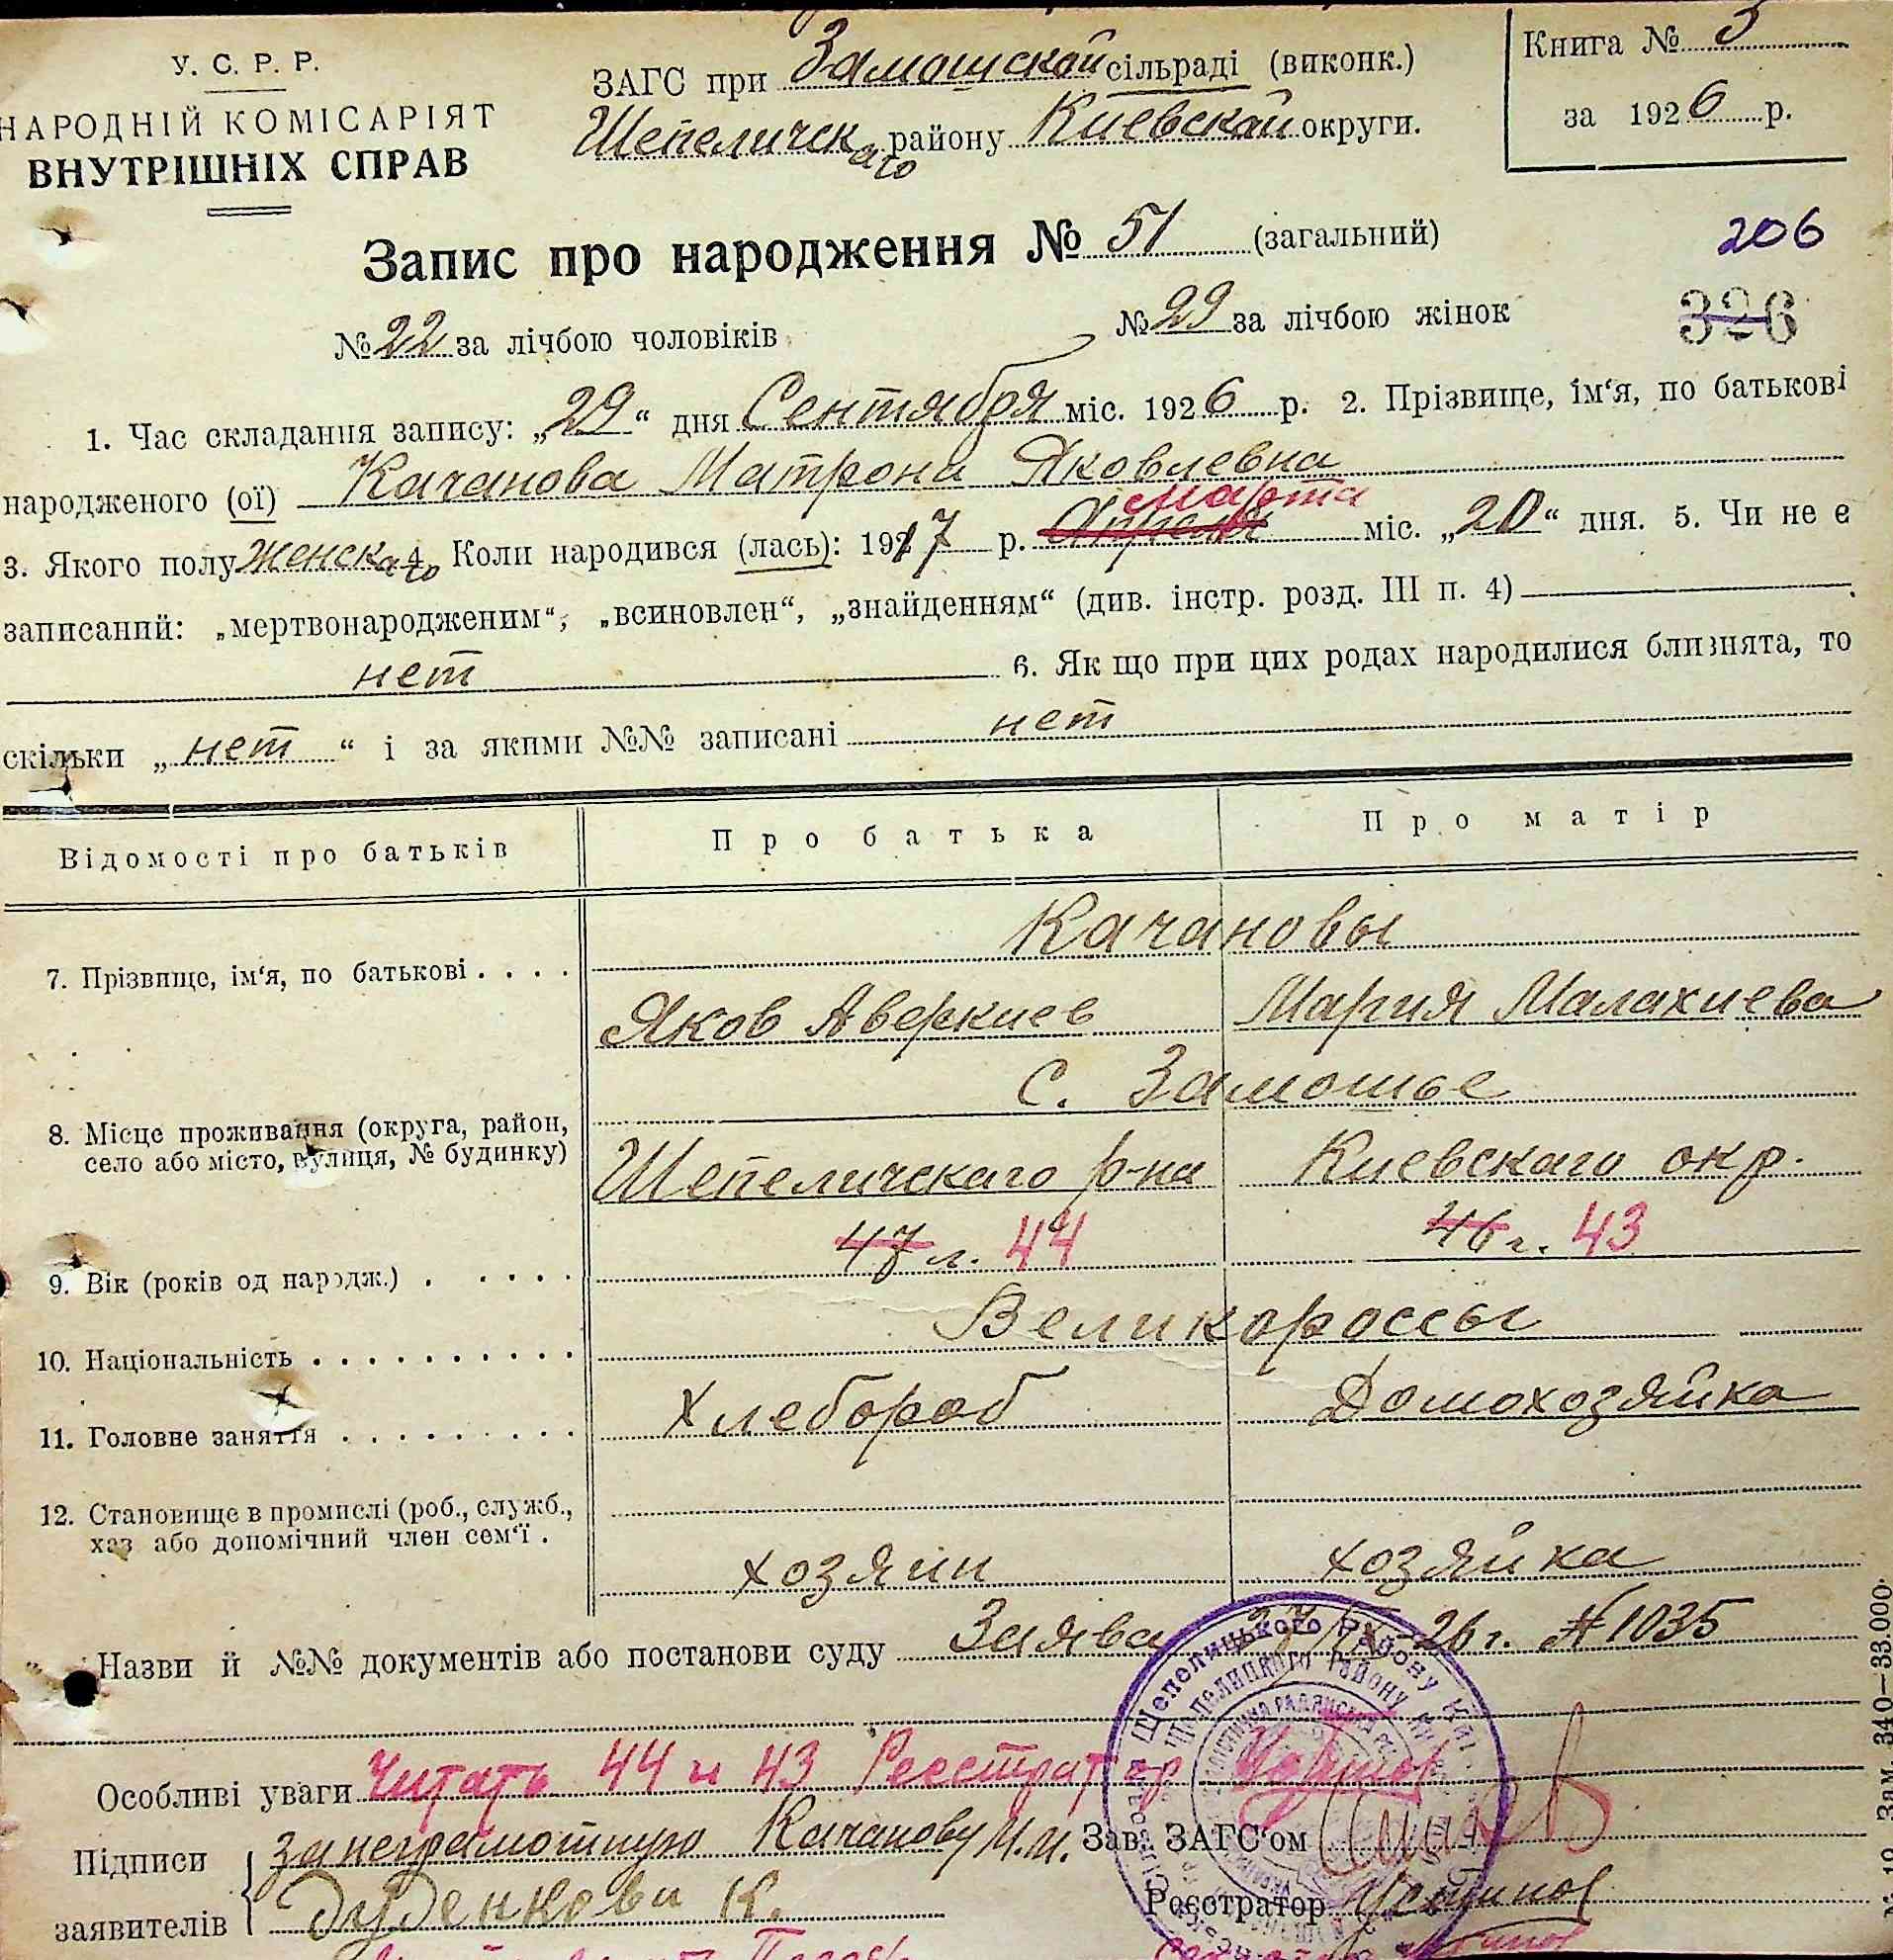 У. С. Р. Р.
НАРОДНІЙ КОМІСАРІЯТ
ВНУТРІШНІХ СПРАВ
ЗАГС при Замошской сільраді (виконк.)
Шепеличскаго району Киевской округи.
Книга № 3
за 1926 р.
Запис про народження № 51 (загальний)
206
326
№ 22 за лічбою чоловіків № 29 за лічбою жінок
1. Час складання запису: „29“ дня Сентября міс. 1926 р. 2. Прізвище, ім‘я, по батькові
народженого (ої) Качанова Матрона Яковлевна
марта
3. Якого полу женскаго 4. Коли народився (лась): 1917 р. Апреля міс. „20“ дня. 5. Чи не є
записаний: „мертвонародженим“, „всиновлен“, „знайденням“ (див. інстр. розд. III п. 4)
нет 6. Як що при цих родах народилися близнята, то
скільки „нет“ і за якими №№ записані нет
Відомості про батьків Про батька Про матір
Качановы
7. Прізвище, ім‘я, по батькові . . . .
Яков Аверкиев Мария Малахиева
С. Замошье
8. Місце проживання (округа, район,
село або місто, вулиця, № будинку)
Шепеличскаго р-на Киевскаго окр.
47 л. 44 46 г. 43
9. Вік (років од народж.) . . . . . .
Великороссы
10. Національність . . . . . . . . . . .
Хлебороб Домохозяйка
11. Головне заняття . . . . . . . . .
12. Становище в промислі (роб., служб.,
хаз або допомічний член сем‘ї .
хозяин хозяйка
Назви й №№ документів або постанови суду Заява 27/IX-26 г. № 1035
Особливі уваги Читать 44 и 43 Реестратор
Підписи за неграмотную Качанову М.М. Зав. ЗАГС‘ом
заявителів Дуденкова К. Реєстратор Устинов
Зам. 340—33.000.